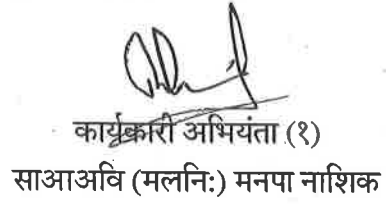 कार्यकारी अभियंता (१)
साआअवि (मलनि:) मनपा नाशिक